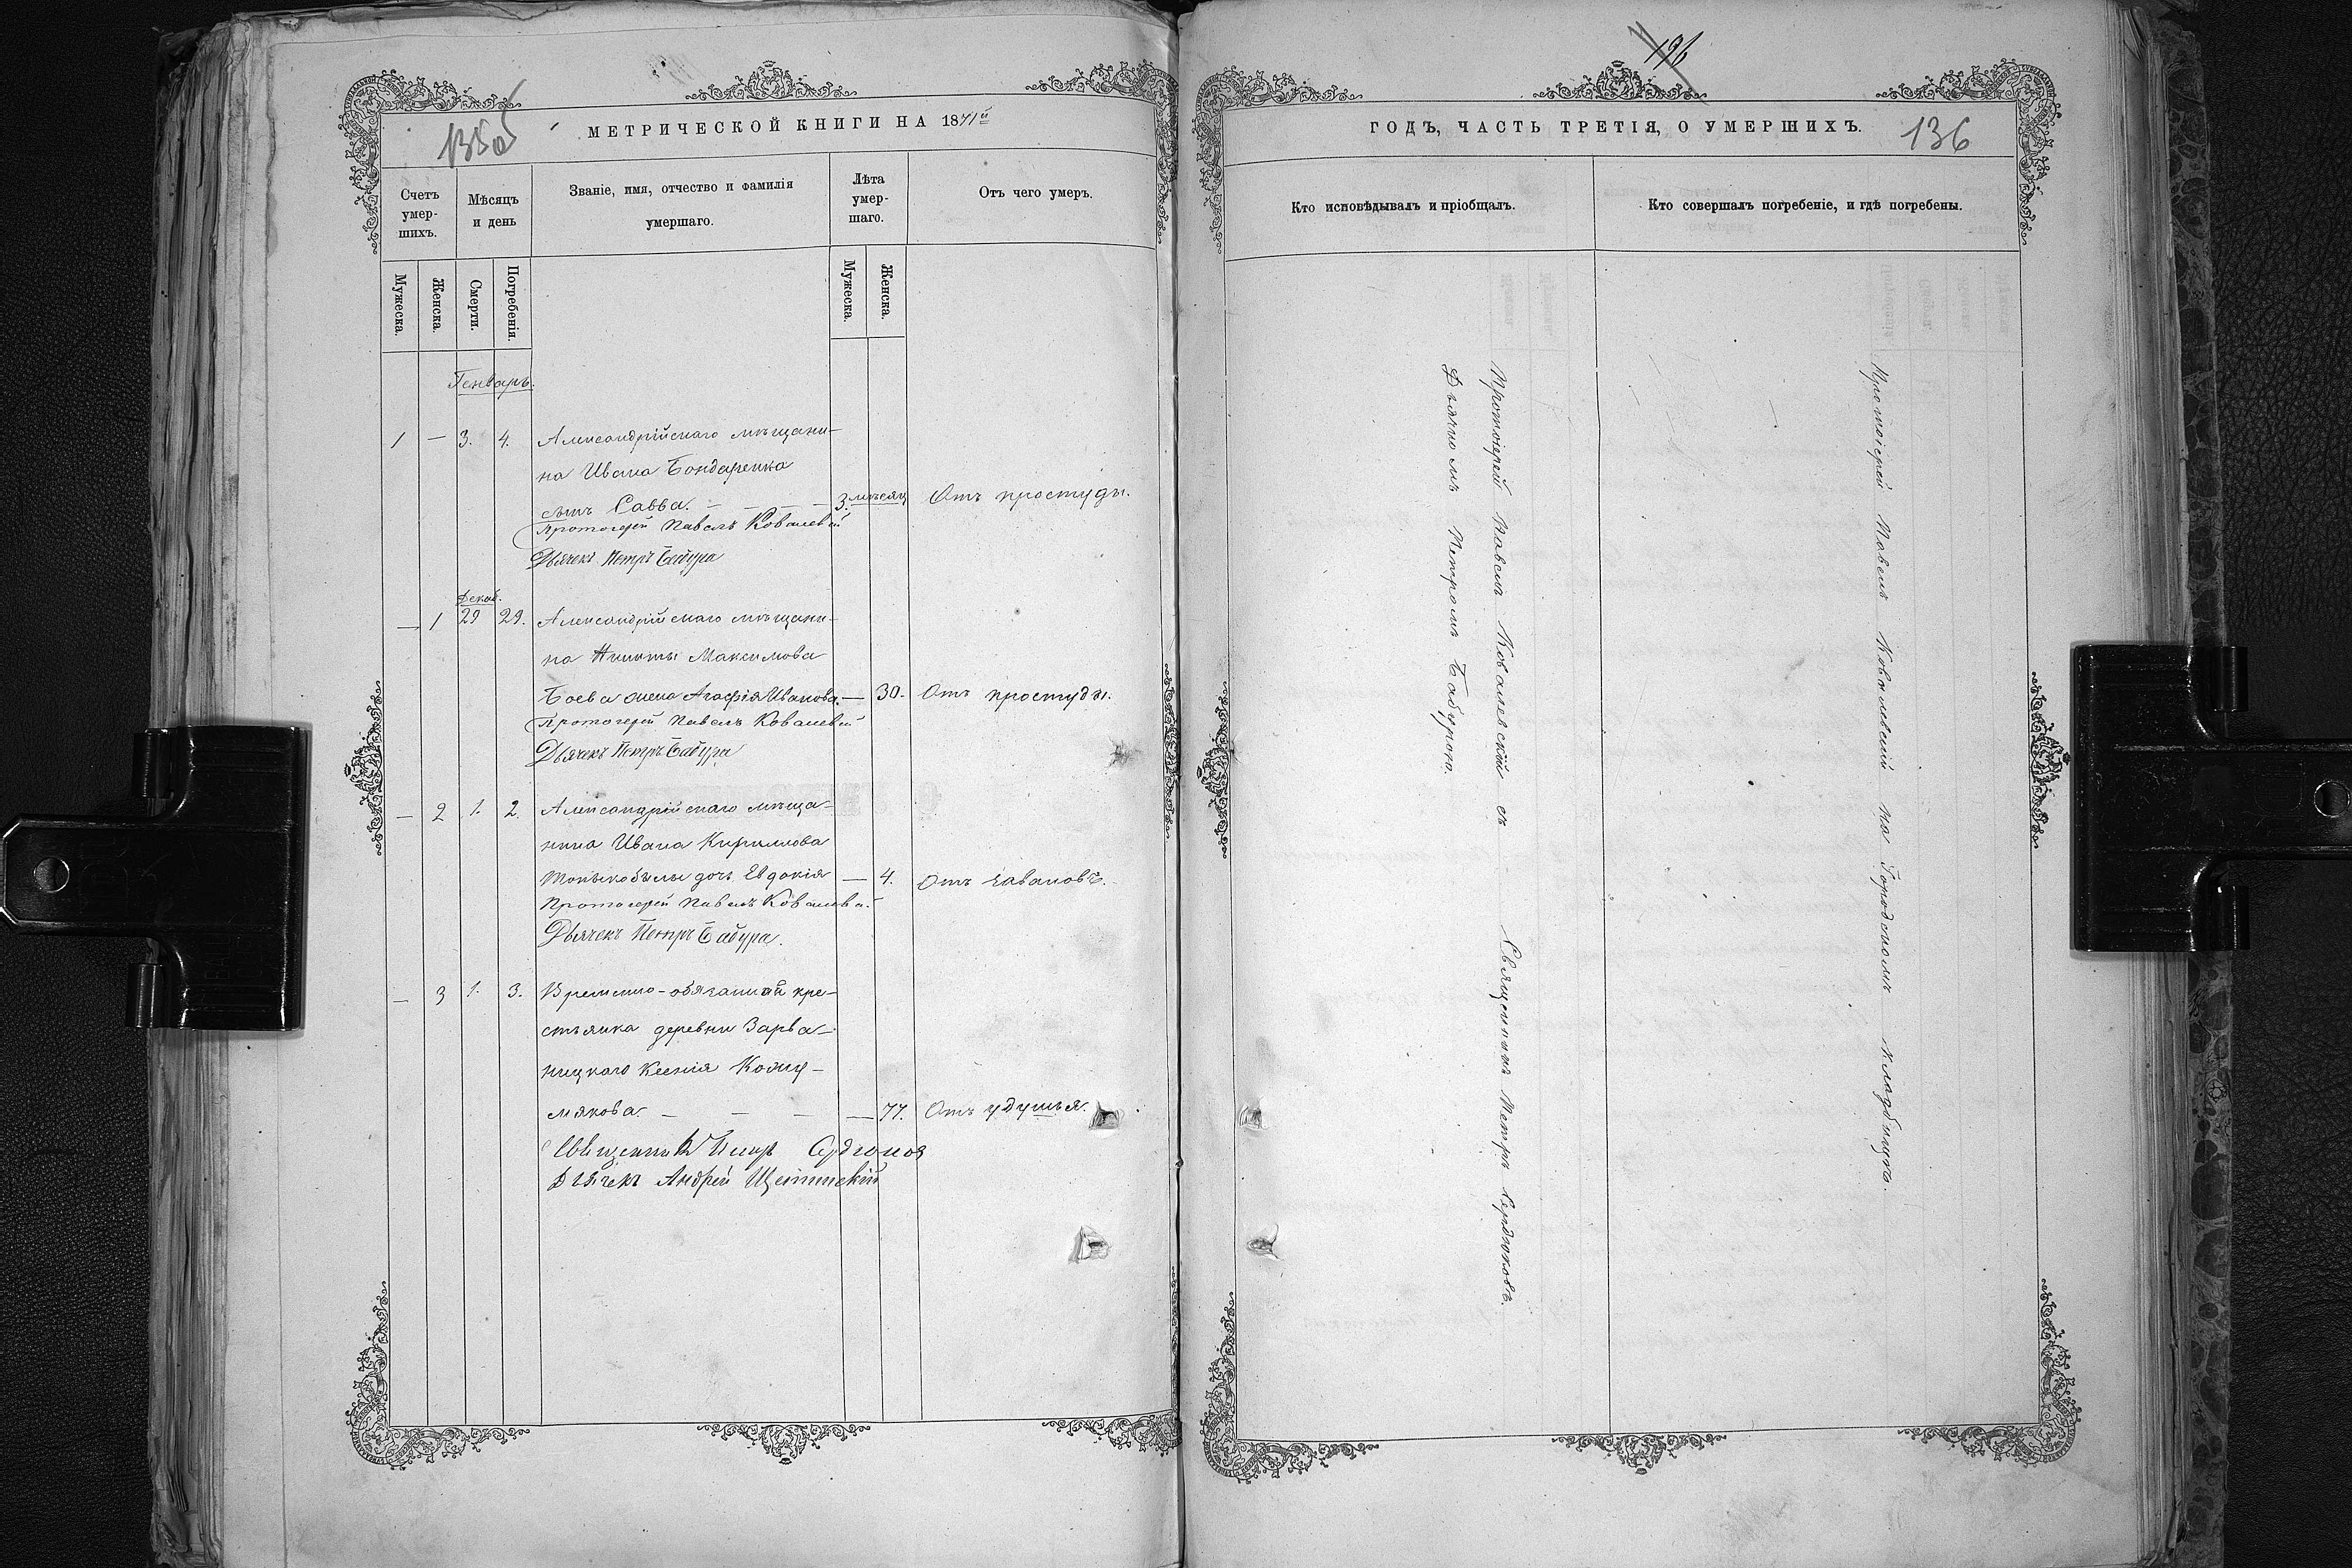 135об
МЕТРИЧЕСКОЙ КНИГИ НА 1871й
Счетъ умер-шихъ.
Мѣсяцъ и день
Званіе, имя, отчество и фамилія умершаго.
Лѣта умер-шаго.
Отъ чего умеръ.
Мужеска.
Женска.
Смерти.
Погребенія.
Мужеска.
Женска.
Генварь.
1 — 3. 4. Александрійскаго мѣщани-
на Ивана Бондаренка
сынъ Савва. — — — 3. мѣсяц Отъ простуды.
Протоіерей Павелъ Ковалевскій
Дьячекъ Петръ Бабура
Декаб.
— 1 29 29. Александрійскаго мѣщани-
на Никиты Максимова
Боева жена Агафія Иванова. — 30. Отъ простуды.
Протоіерей Павелъ Ковалевскій
Дьячекъ Петръ Бабура
— 2 1. 2. Александрійскаго мѣща-
нина Ивана Кириллова
дочь Евдокія — 4. Отъ
Протоіерей Павелъ Ковалевскій
Дьячекъ Петръ Бабура.
— 3 1. 3. Временно-обязанная кре-
стьянка деревни Зарва-
ницкаго Ксенія Кожу-
мякова. — — — — 77. Отъ удушья.
Священникъ Петръ
Дьячекъ Андрей Щетинскій
196
ГОДЪ, ЧАСТЬ ТРЕТІЯ, О УМЕРШИХЪ.
136
Кто исповѣдывалъ и пріобщалъ.
Кто совершалъ погребеніе, и гдѣ погребены.
Протоіерей Павелъ Ковалевскій съ
Дьячкомъ Петромъ Бабурою.
Священникъ Петръ Сердюковъ.
Протоіерей Павелъ Ковалевскій на Городскомъ кладбищѣ.